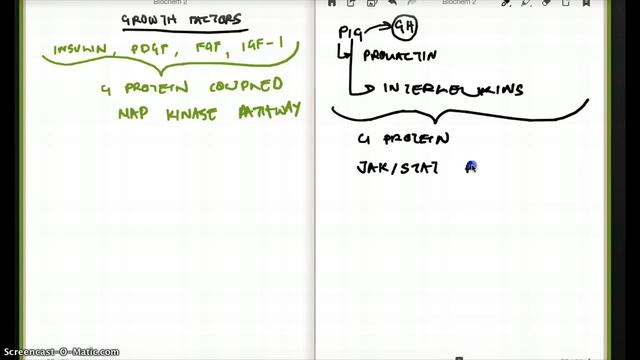 Biochem 2
Biochem 2
GROWTH FACTORS
INSULIN, PDGF, FGF, IGF-1
G PROTEIN COUPLED
MAP KINASE PATHWAY
PIG GH
PROLACTIN
INTERLEUKINS
G PROTEIN
JAK/STAT
Screencast-O-Matic.com